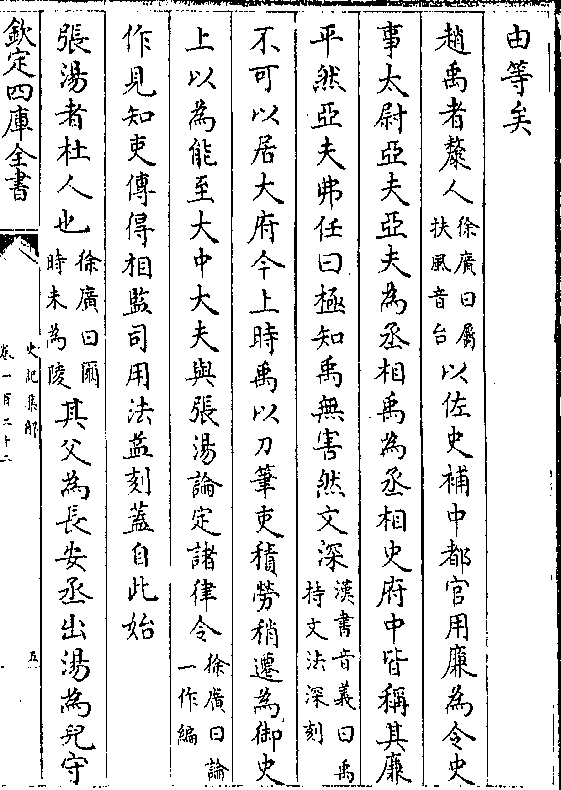 由等矣
趙禹者斄人徐廣曰屬扶風音台以佐史補中都官用廉為令史
事太尉亞夫亞夫為丞相禹為丞相史府中皆稱其廉
平然亞夫弗任曰極知禹無害然文深漢書音義曰禹持文法深刻
不可以居大府今上時禹以刀筆吏積勞稍遷為御史
上以為能至大中大夫與張湯論定諸律令徐廣曰論一作編
作見知吏傳得相監司用法益刻蓋自此始
張湯者杜人也徐廣曰爾時未為陵其父為長安丞出湯為兒守
欽定四庫全書
史記集解
卷一百二十二
五